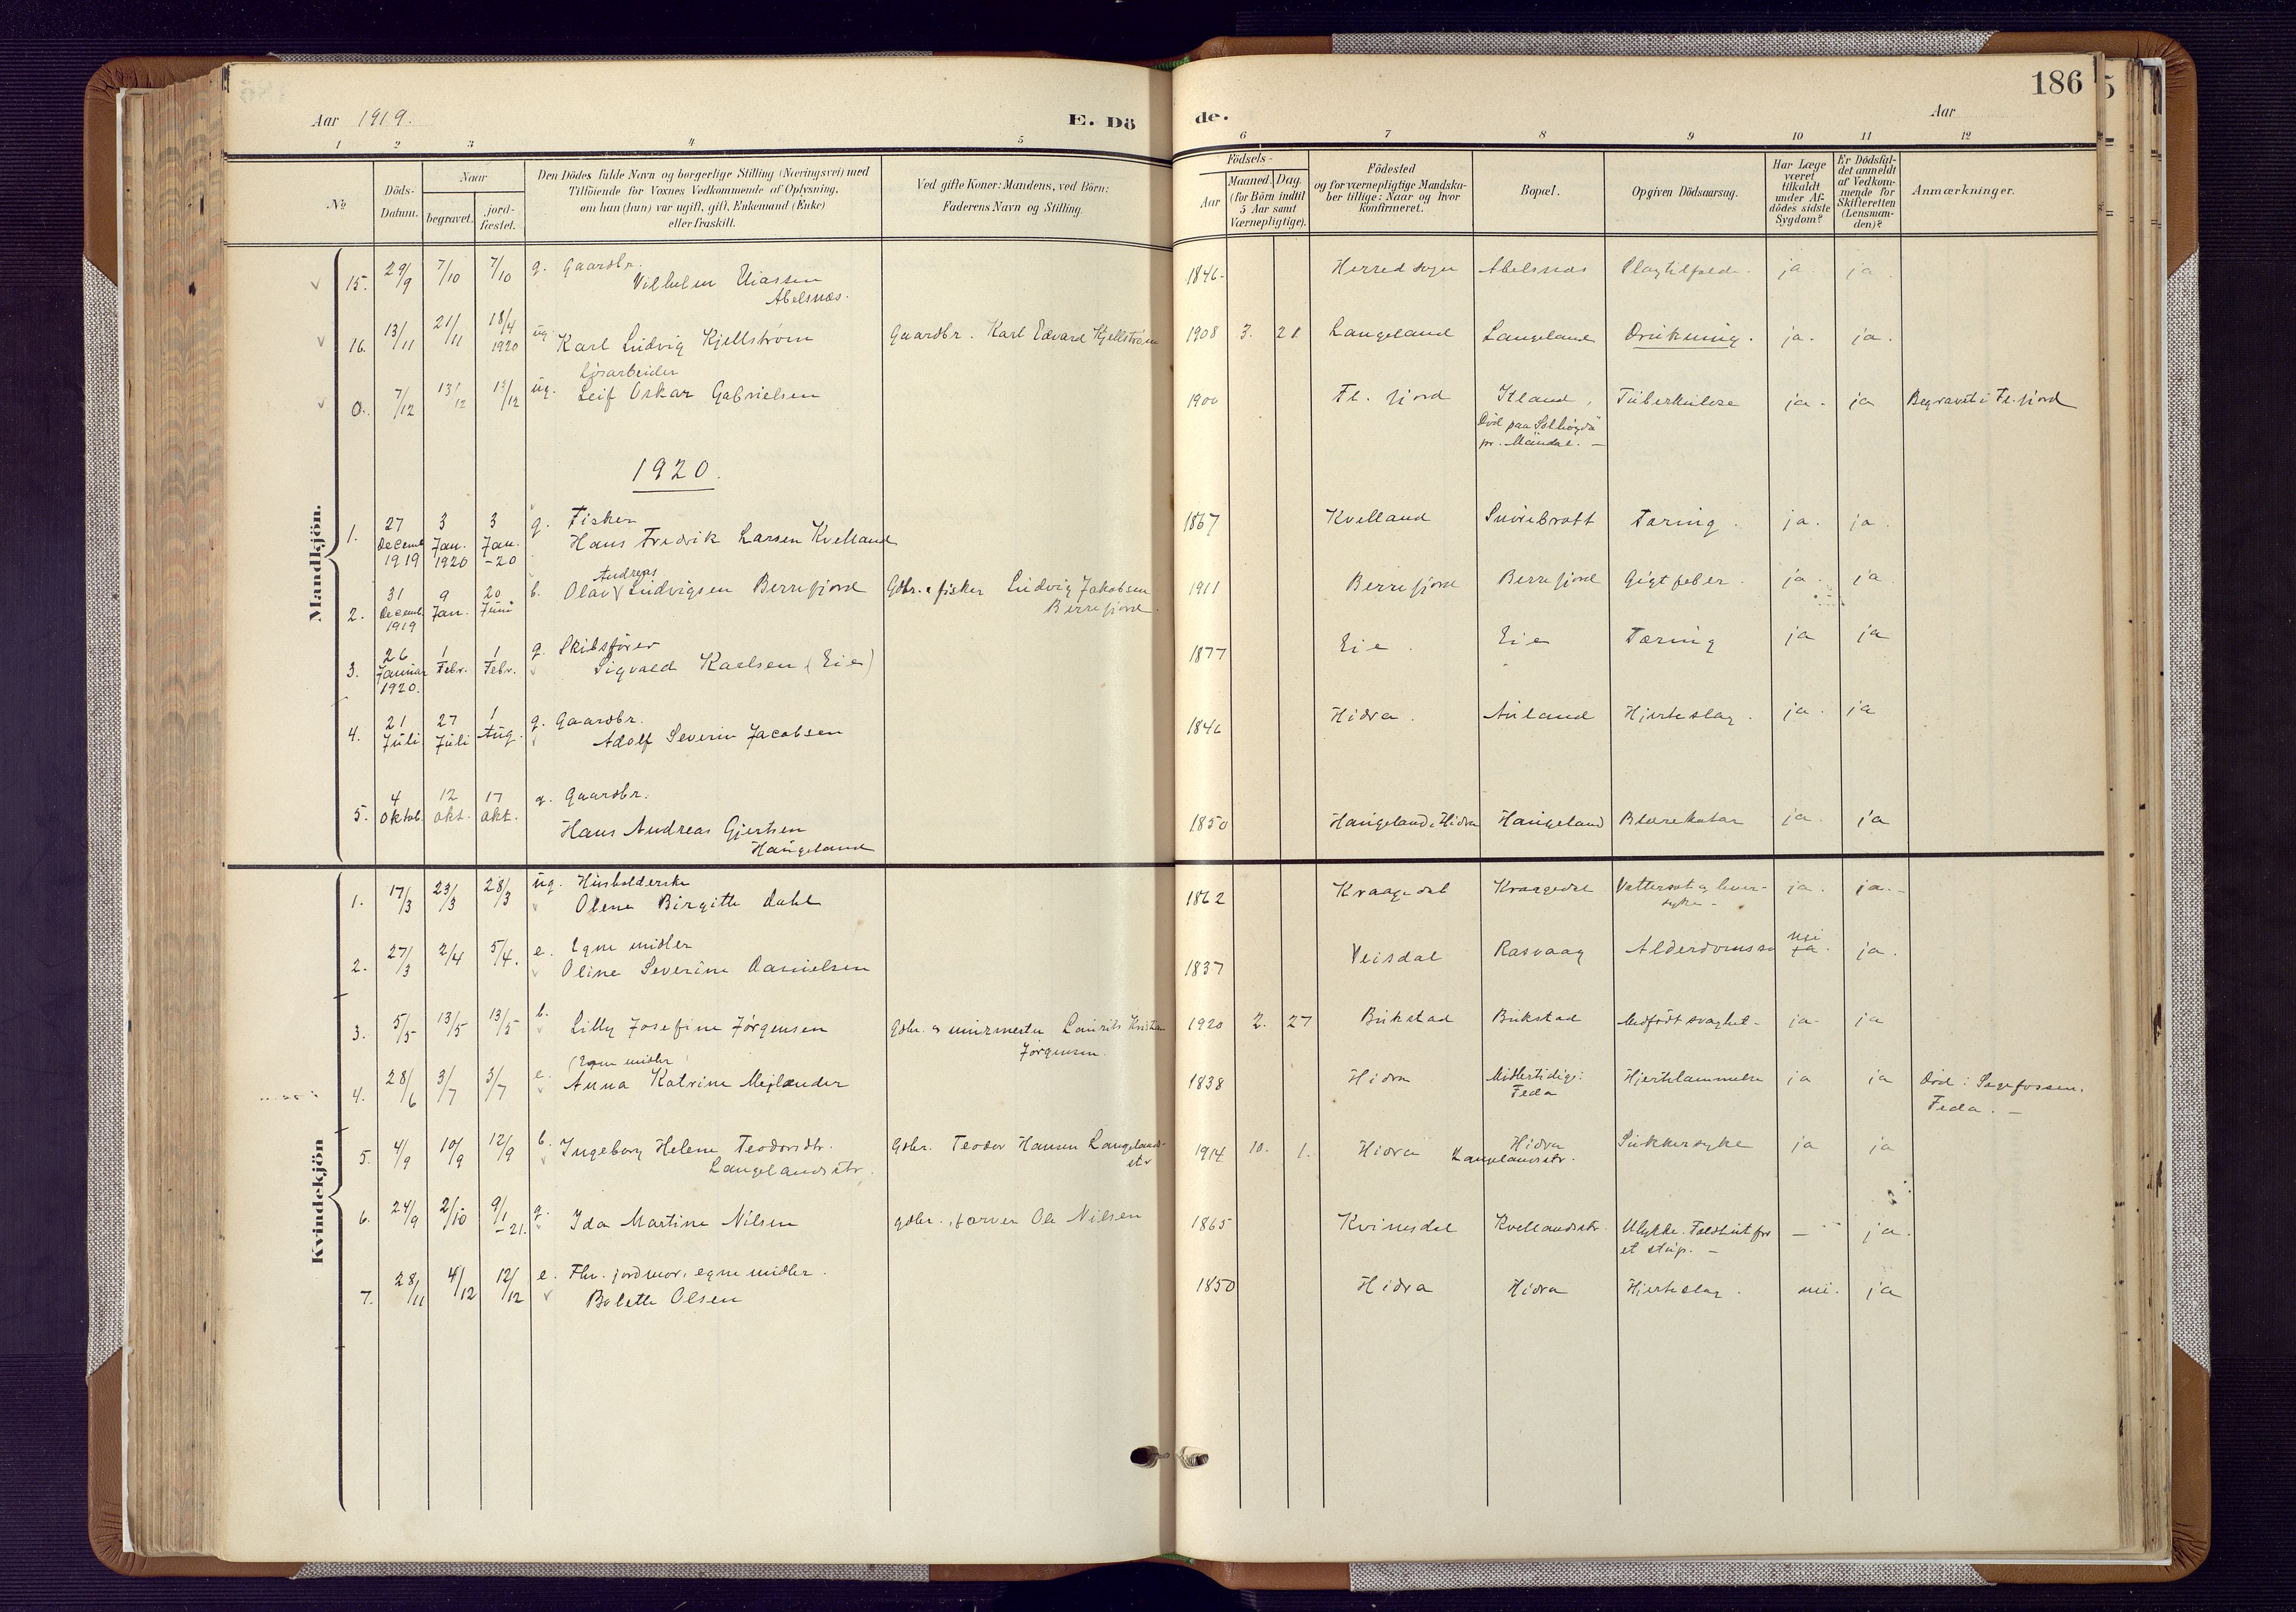 186
Aar 1919.
E. Dö
de.
Aar
1 2 3 4 5 6 7 8 9 10 11 12
No
Döds-
Datum.
Naar
begravet.
jord-
fæstet.
Den Dödes fulde Navn og borgerlige Stilling (Næringsvei) med
Tilföiende for Voxnes Vedkommende af Oplysning,
om han (hun) var ugift, gift, Enkemand (Enke)
eller fraskilt.
Ved gifte Koner: Mandens, ved Börn:
Faderens Navn og Stilling.
Födsels-
Aar
Maaned. Dag.
(for Börn indtil
5 Aar samt
Værnepligtige).
Födested
og for værnepligtige Mandska-
ber tillige: Naar og hvor
konfirmeret.
Bopæl.
Opgiven Dödsaarsag.
Har Læge
været
tilkaldt
under Af-
dödes sidste
Sygdom?
Er Dödsfal-
det anmeldt
af Vedkom-
mende for
Skifteretten
(Lensman-
den)?
Anmærkninger.
Mandkjön.
15. 29/9 7/10 7/10 g. Gaardbr. 1846- Herred sogn Abelsnæs Slagtilfælde. ja. ja.
Vilhelm Eliassen
Abelsnæs.
16. 13/11 21/11 18/4 1920 ug. Karl Ludvig Kjellstrøm Gaardbr. Karl Edvard Kjellstrøm 1908 3. 21 Langeland Langeland Drukning. ja. ja.
Løsarbeider
0. 7/12 13/12 13/12 ug. Leif Oskar Gabrielsen 1900 Fl. fjord Itland, Tüberkulose ja. ja Begravet i Fl. fjord
Død paa Solhøgda
pr. Mandal. –
1920.
1. 27 Decemb. 1919 3 Jan. 1920 3 Jan. -20 g. Fisker 1867 Kvelland Snørebratt Tæring. ja. ja.
Hans Fredrik Larsen Kvelland
Andreas
2. 31 Decemb. 1919 9 Jan. 20 Juni b. Olav Ludvigsen Berrefjord Gdbr. & fisker Ludvig Jakobsen 1911 Berrefjord Berrefjord Gigtfeber. ja. ja
Berrefjord.
3. 26 Januar 1920. 1 Febr. 1 Febr. g. Skibsfører 1877 Eie. Eie Tæring ja ja
Sigvald Karlsen (Eie)
4. 21 Juli 27 Juli 1 Aug. g. Gaardbr. 1846 Hidra. Auland Hjerteslag. ja. ja
Adolf Severin Jacobsen
5. 4 Oktob. 12 Okt. 17 Okt. g. Gaardbr. 1850 Haugeland, Hidra Haugeland Blærekatar ja. ja
Hans Andreas Gjertsen
Haugeland
Kvindekjön
1. 17/3 23/3 28/3 ug. Husholderske 1862 Kraagedal Kraagedal Vattersot og lever- ja. ja. -
Olene Birgitte Dahl syke -
2. 27/3 2/4 5/4. e. Egne midler 1837 Veisdal Rasvaag nei ja. ja.
Oline Severine Danielsen
3. 5/5 13/5 13/5 b. Lilly Josefine Jörgensen Gdbr. & murmester Laurits Kristian 1920 2. 27 Bukstad Bukstad Medfødt svaghet- ja- ja
Jörgensen.
(Egne midler)
4. 28/6 3/7 3/7 e. Anna Katrine Mejlænder 1838 Hidra Midlertidig: Hjertelammelse ja ja Død i Sagefossen.
Feda Feda. –
5. 4/9 10/9 12/9 b. Ingeborg Helene Teodorsdtr. Gdbr. Teodor Hansen Langelands- 1914 10. 1. Hidra Hidra Sukkersyke ja ja
Langelandsstr. str Langelandsstr.
6. 24/9 2/10 9/1 -21. g. Ida Martine Nilsen gdbr. farver Ole Nilsen 1865 Kvinesdal Kvellandsstr. Ulykke. Faldt ut for — ja.
et stup. –
7. 28/11 4/12 12/12 e. Fhv. jordmor, egne midler. 1850 Hidra Hidra Hjerteslag. nei. ja
Bolette Olsen